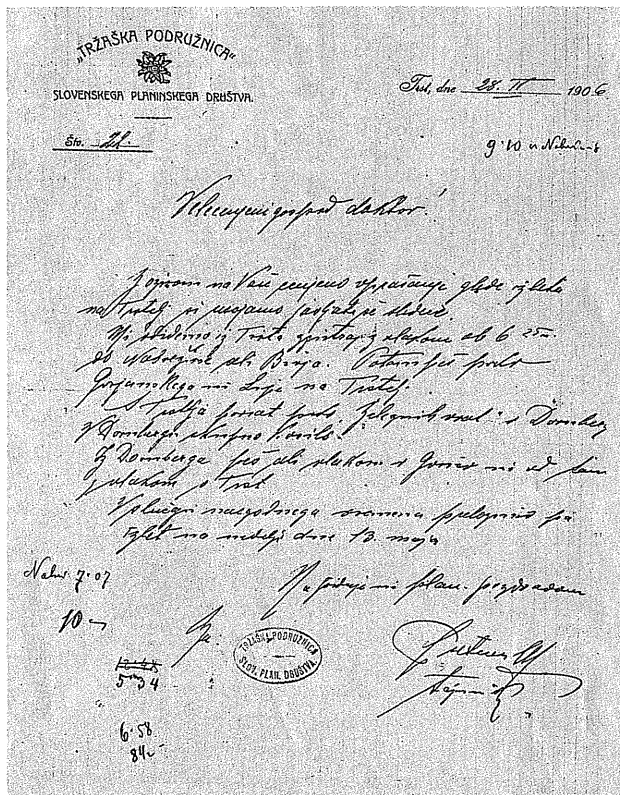 „TRŽAŠKA PODRUŽNICA“
SLOVENSKEGA PLANINSKEGA DRUŠTVA.
Trst, dne 28. IV 1906
Što. 22.
9.10 v
Velecenjeni gospod doktor!
Z ozirom na Vaše cenjeno vprašanje glede izleta
na Trstelj si usojamo javljati sledeče.
Mi odidemo iz Trsta zjutraj z vlakom ob 6 25m.
do Nabrežine ali Bivja. Potem peš preko
Gorjanskega na Trstelj.
S Trstlja povrat preko Železnih vrat v Dornberg
V Dornbergu skupno kosilo.
Iz Dornberga peš ali vlakom v Gorico in od tam
z vlakom v Trst
V slučaju neugodnega vremena preložimo pa
izlet na nedeljo dne 13. maja
Nabr. 7.07
plan. pozdravom
10
Za:
TRŽAŠKA PODRUŽNICA
SLOV. PLAN. DRUŠTVA.
tajnik
5 34
6.58
84